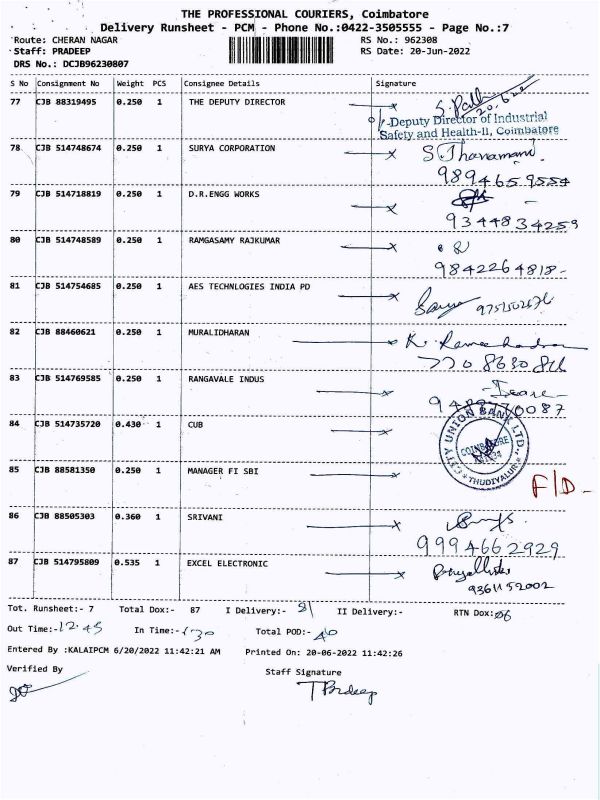 THE PROFESSIONAL COURIERS, Coimbatore
Delivery Runsheet - PCM - Phone No.:0422-3505555 - Page No.:7
Route: CHERAN NAGAR RS No.: 962308
Staff: PRADEEP RS Date: 20-Jun-2022
DRS No.: DCJB96230807
S No Consignment No Weight PCS Consignee Details Signature
77 CJB 88319495 0.250 1 THE DEPUTY DIRECTOR
Deputy Director of Industrial
Safety and Health-II, Coimbatore
78 CJB 514748674 0.250 1 SURYA CORPORATION
9894659554
79 CJB 514718819 0.250 1 D.R.ENGG WORKS
9344834259
80 CJB 514748589 0.250 1 RAMGASAMY RAJKUMAR
9842264818-
81 CJB 514754685 0.250 1 AES TECHNLOGIES INDIA PD
82 CJB 88460621 0.250 1 MURALIDHARAN
83 CJB 514769585 0.250 1 RANGAVALE INDUS
84 CJB 514735720 0.430 1 CUB
CITY UNION BANK LTD.
COIMBATORE
THUDIYALUR
85 CJB 88581350 0.250 1 MANAGER FI SBI
F/D-
86 CJB 88505303 0.360 1 SRIVANI
9994662929
87 CJB 514795809 0.535 1 EXCEL ELECTRONIC
9361152002
Tot. Runsheet:- 7 Total Dox:- 87 I Delivery:- 81 II Delivery:- RTN Dox: 06
Out Time:- 12.45 In Time:- 1.30 Total POD:-
Entered By :KALAIPCM 6/20/2022 11:42:21 AM Printed On: 20-06-2022 11:42:26
Verified By Staff Signature